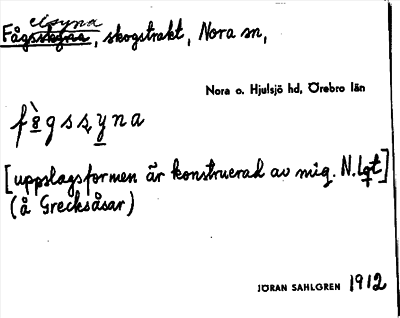 elsyna
Fågsskyna, skogstrakt, Nora sn,
Nora o. Hjulsjö hd, Örebro län
fògssyna
[uppslagsformen är konstruerad av mig. N.Lqt]
(å Grecksåsar)
JÖRAN SAHLGREN 1912